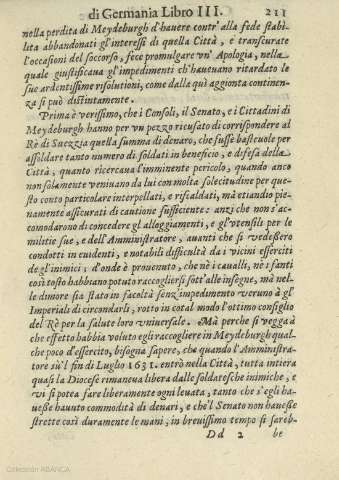 di Germania Libro III. 211
nella perdita di Meydeburgh d'hauere contr'alla fede stabi-
lita abbandonati gl'interessi di quella Città, e transcurate
l'occasioni del soccorso, fece promulgare vn'Apologia, nella
quale giustificaua gl'impedimenti ch'haueuano ritardato le
sue ardentissime risolutioni, come dalla quì aggionta continen-
za si può distintamente.
Prima è verissimo, che i Consoli, il Senato, e i Cittadini di
Meydeburgh hanno per vn pezzo ricusato di corrispondere al
Rè di Suezzia quella summa di denaro, che fusse basteuole per
assoldare tanto numero di soldati in beneficio, e difesa della
Città, quanto ricercaua l'imminente pericolo, quando anco
non solamente veniuano da lui con molta solecitudine per que-
sto conto particolare interpellati, e riscaldati, mà etiandio pie-
namente assicurati di cautione sufficiente: anzi che non s'ac-
comodarono di concedere gl'alloggiamenti, e gl'vtensili per le
militie sue, e dell'Amministratore, auanti che si vedessero
condotti in euidenti, e notabili difficoltà da i vicini esserciti
de gl'inimici; d'onde è prouenuto, che nè i caualli, nè i fanti
così tosto habbiano potuto raccogliersi sott'alle insegne, mà nel-
le dimore sia stato in facoltà senz'impedimento veruno à gl'
Imperiali di circondarli, rotto in cotal modo l'ottimo consiglio
del Rè per la salute loro vniuersale. Mà perche si vegga à
che effetto habbia voluto egli raccogliere in Meydeburgh qual-
che poco d'essercito, bisogna sapere, che quando l'Amministra-
tore sù'l fin di Luglio 1631. entrò nella Città, tutta intiera
quasi la Diocese rimaneua libera dalle soldatesche inimiche, e
vi si potea fare liberamente ogni leuata, tanto che s'egli ha-
uesse hauuto commodità di denari, e che'l Senato non hauesse
strette così duramente le mani, in breuissimo tempo si sareb-
Dd 2 be
Colección ABANCA